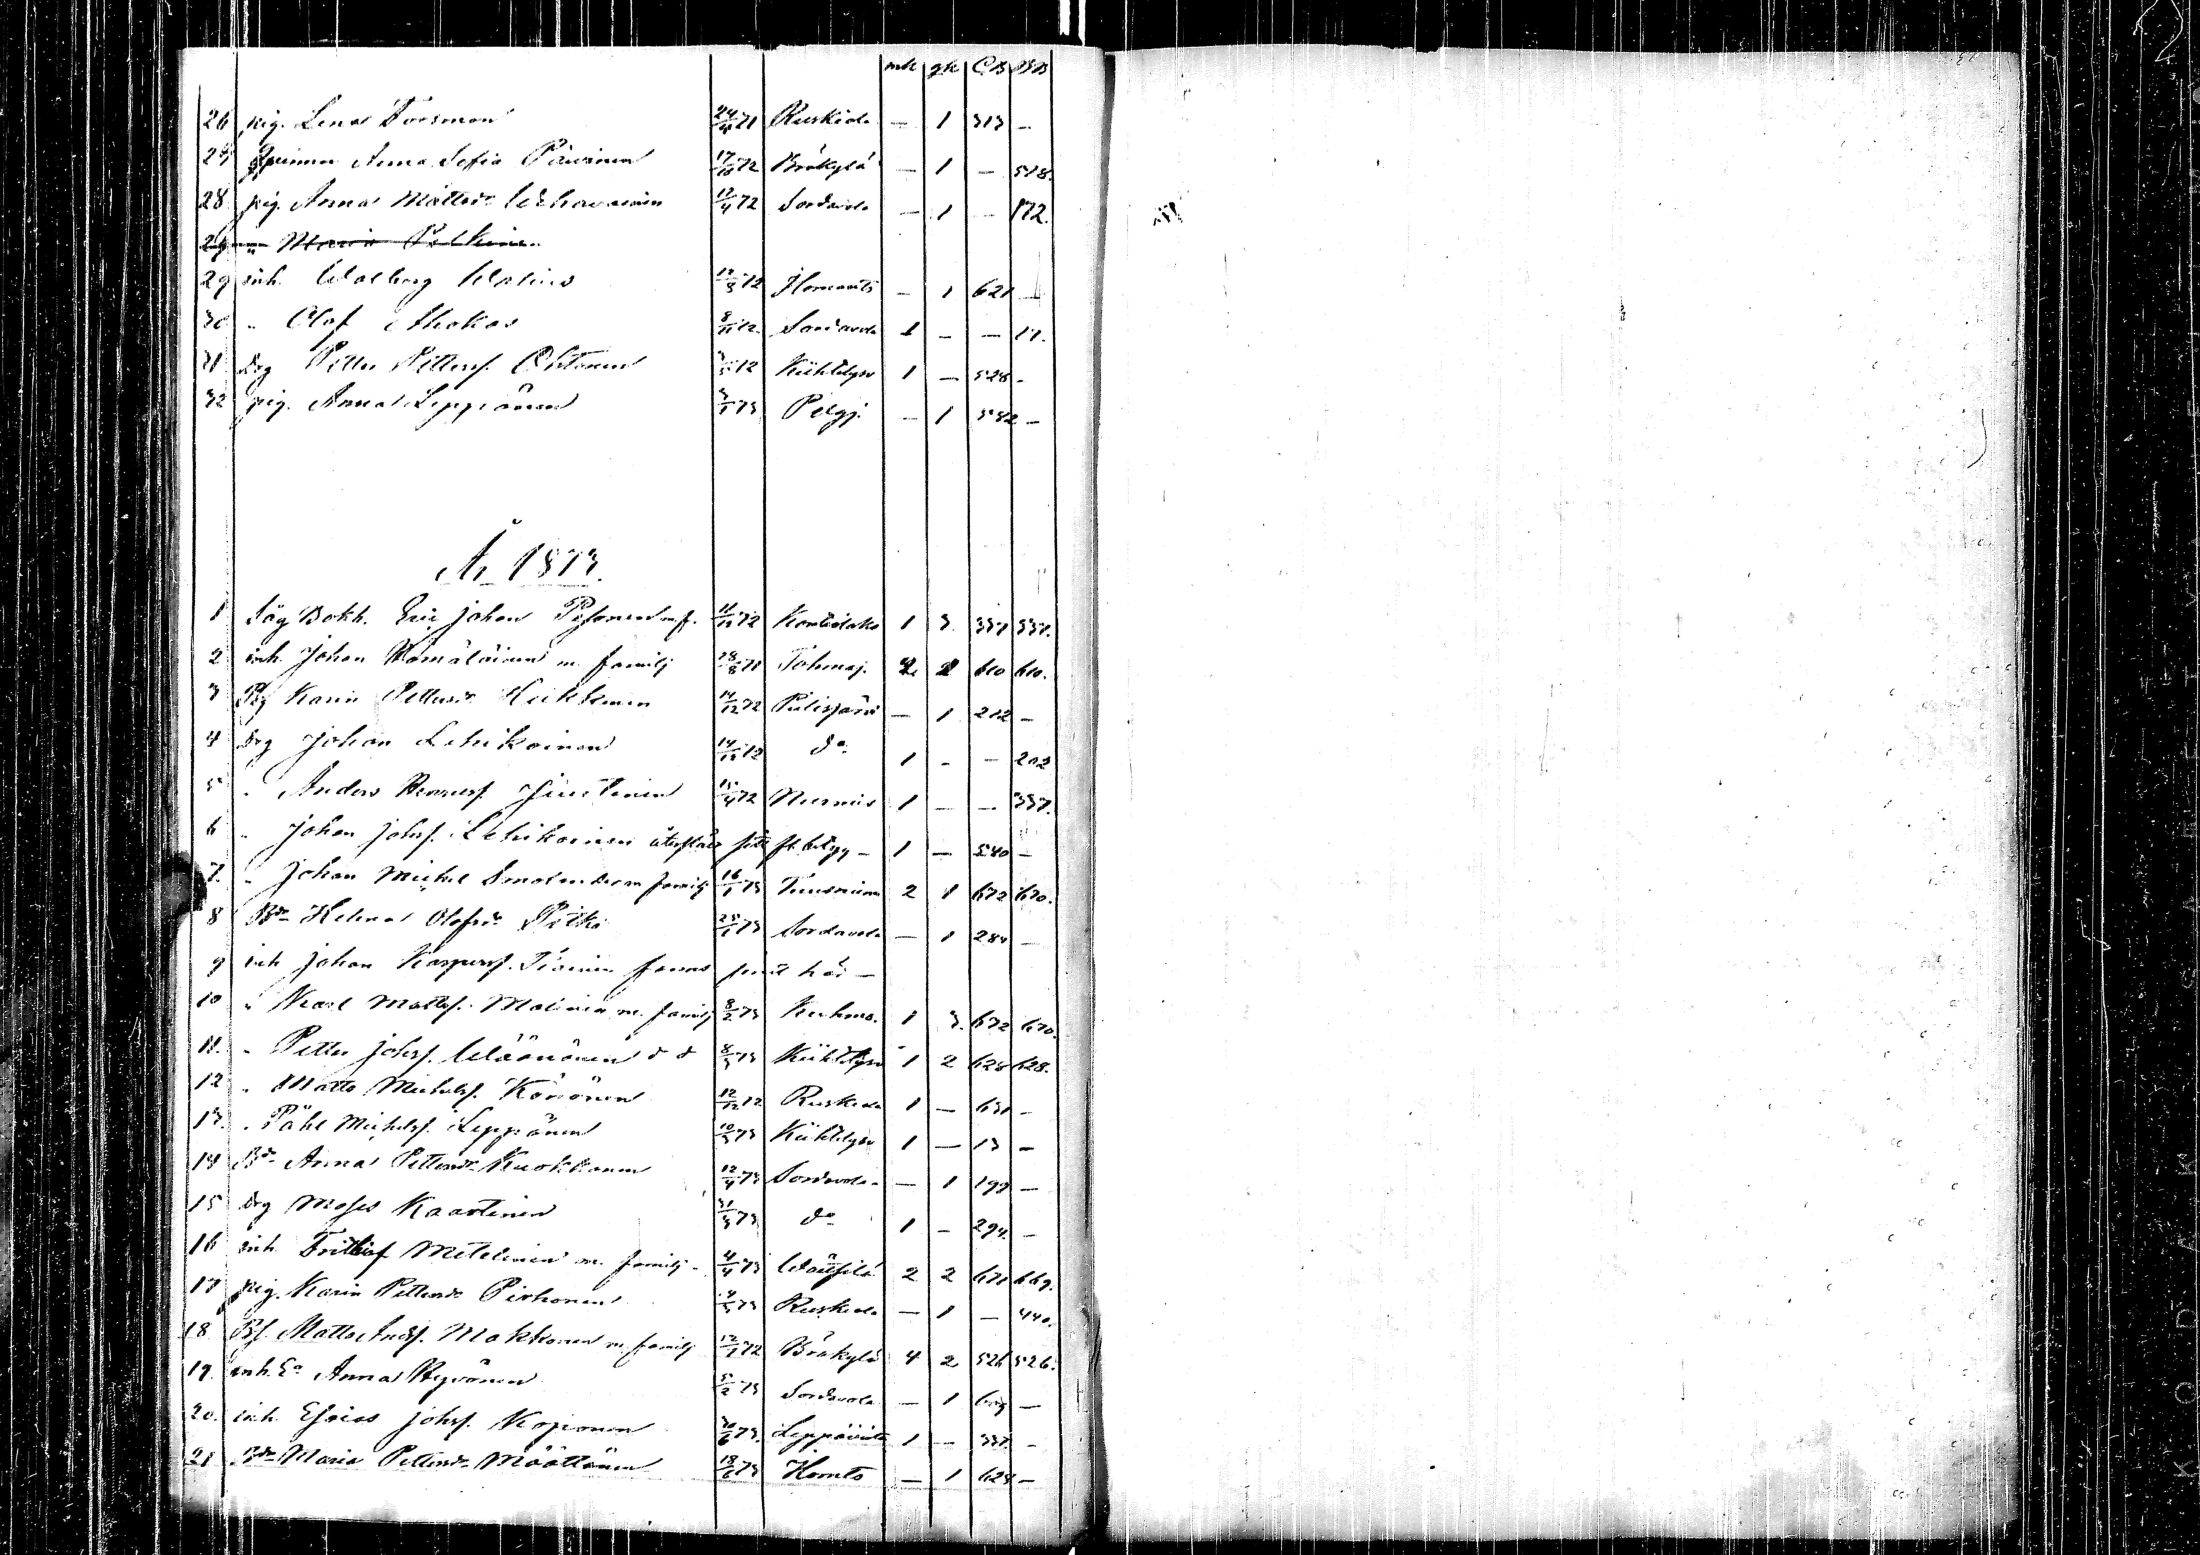 mk gk CB BB
26 pig. Lena Torsman 24/4 71 Ruskiala — 1 313 —
27 qvinnan Anna Sofia Päivinen 17/10 72 Bräkylä — 1 — 518.
28 pig. Anna Mattsdr 12/4 72 Sordavala — 1 — 172.
29 " Maria
29 inh. Walborg 12/8 72 Ilomants — 1 621 —
30 " Olof Ahokas 8/11 72. Sordavala 1 — — 17.
31 Drg Petter Petterss. 72 Kiihtelysv 1 — 528 —
32 pig. Anna Leppänen 3/1 73 Pelgj. — 1 542 —
År 1873.
1 Såg Bokh. Eric Johan Pesonen m. f. 11/11 72 Kontiolaks 1 3. 337 337.
2 inh. Johan Hämäläinen m. familj 28/8 71 Tohmaj. 2 2 610 610.
3 Pig Karin Pettersdr Heikkinen 14/12 72 Pielisjärvi — 1 212 —
4 Drg Johan Lehikoinen 14/12 72 do 1 — — 202
5 " Anders 15/4 72 Nurmis 1 — — 337.
6 " Johan Johss. Lehikoinen — 1 — 540 —
7. " Johan Michel Smolander m familj 16/1 73 Tuusniemi 2 1 672 670.
8 Bdr Helena Olofsdr Pitkä 25/1 73 Sordavala — 1 284 —
9 inh Johan Kasperss. Tiainen fanns här —
10 " Karl Mattss. Malinen m. familj 8/2 73 Kuhmo. 1 3. 672 670.
11. " Petter Johss. Wäänänen d d 8/3 73 Kiihtelysv 1 2 628 628.
12 " Matts Michelss. Könönen 12/12 72 Ruskeala 1 — 631 —
13. " Påhl Michelss. Leppänen 10/3 73 Kiihtelysv 1 — 13 —
14 Bdr Anna Pettersdr Kuokkanen 12/4 73 Sordavala — 1 199 —
15 Drg Moses Kaartinen 31/3 73 do 1 — 294. —
16 inh. Fritiof Metelinen m. familj — 4/4 73 Wärtsilä 2 2 671 669.
17 pig. Karin Pettersdr Pirhonen 73 Ruskeala — 1 — 440.
18 Bs. Matts Andss. Makkonen m. familj 12/1 72 Bräkylä 4 2 526 526.
19. inh. Ea Anna Hyvönen 5/2 73 Sordavala — 1 609 —
20. inh. Esaias Johss. Koponen 30/6 73. Leppävirta 1 — 337. —
21 Bdr Maria Pettersdr Määttänen 18/6 73 Ilomts — 1 628 —
KODAK